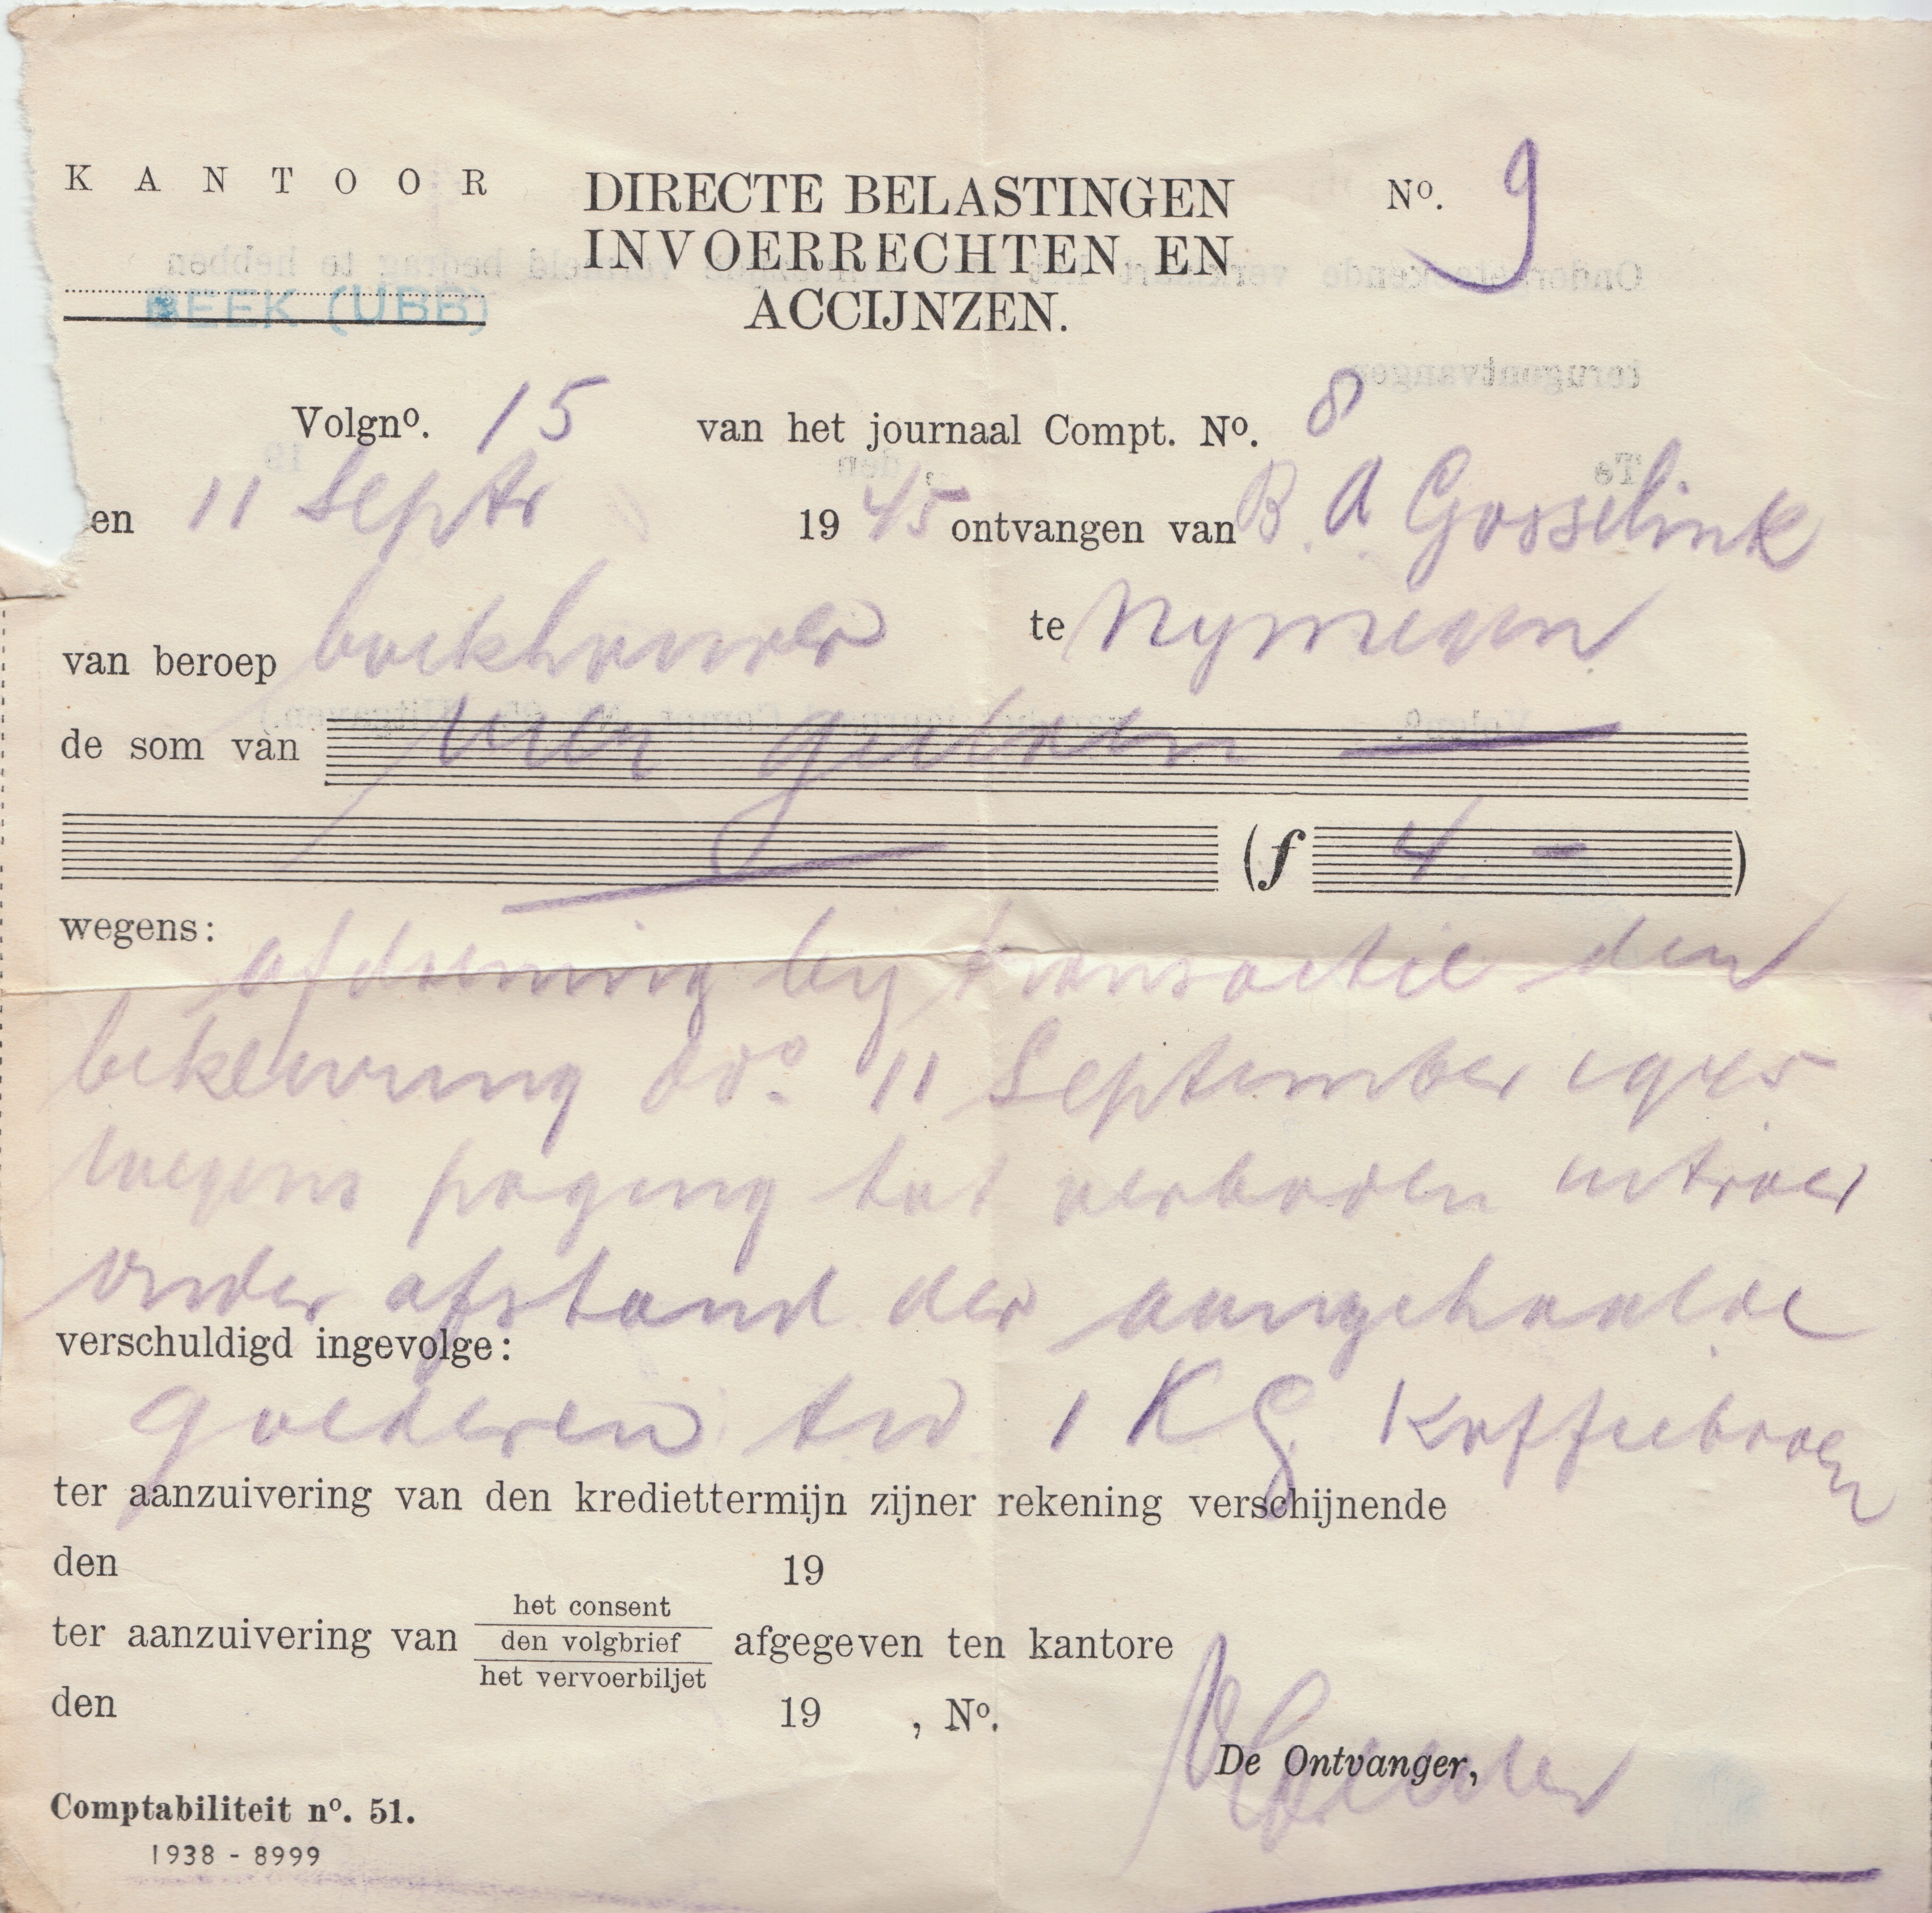 KANTOOR
DIRECTE BELASTINGEN
INVOERRECHTEN EN
ACCIJNZEN.
Nº. 9
BEEK (UBB)
Volgnº. 15 van het journaal Compt. Nº. 8
en 11 Septr 1945 ontvangen van B. A. Gosselink
van beroep boekhouder te Nymegen
de som van vier gulden
(f 4 - )
wegens:
afdoening by transactie den
bekeuring dd. 11 September 1945
wegens poging tot verboden uitvoer
onder afstand der aangehaalde
verschuldigd ingevolge:
goederen 1 KG koffieboon
ter aanzuivering van den krediettermijn zijner rekening verschijnende
den 19
het consent
ter aanzuivering van den volgbrief afgegeven ten kantore
het vervoerbiljet
den 19 , Nº.
De Ontvanger,
Comptabiliteit nº. 51.
1938 - 8999